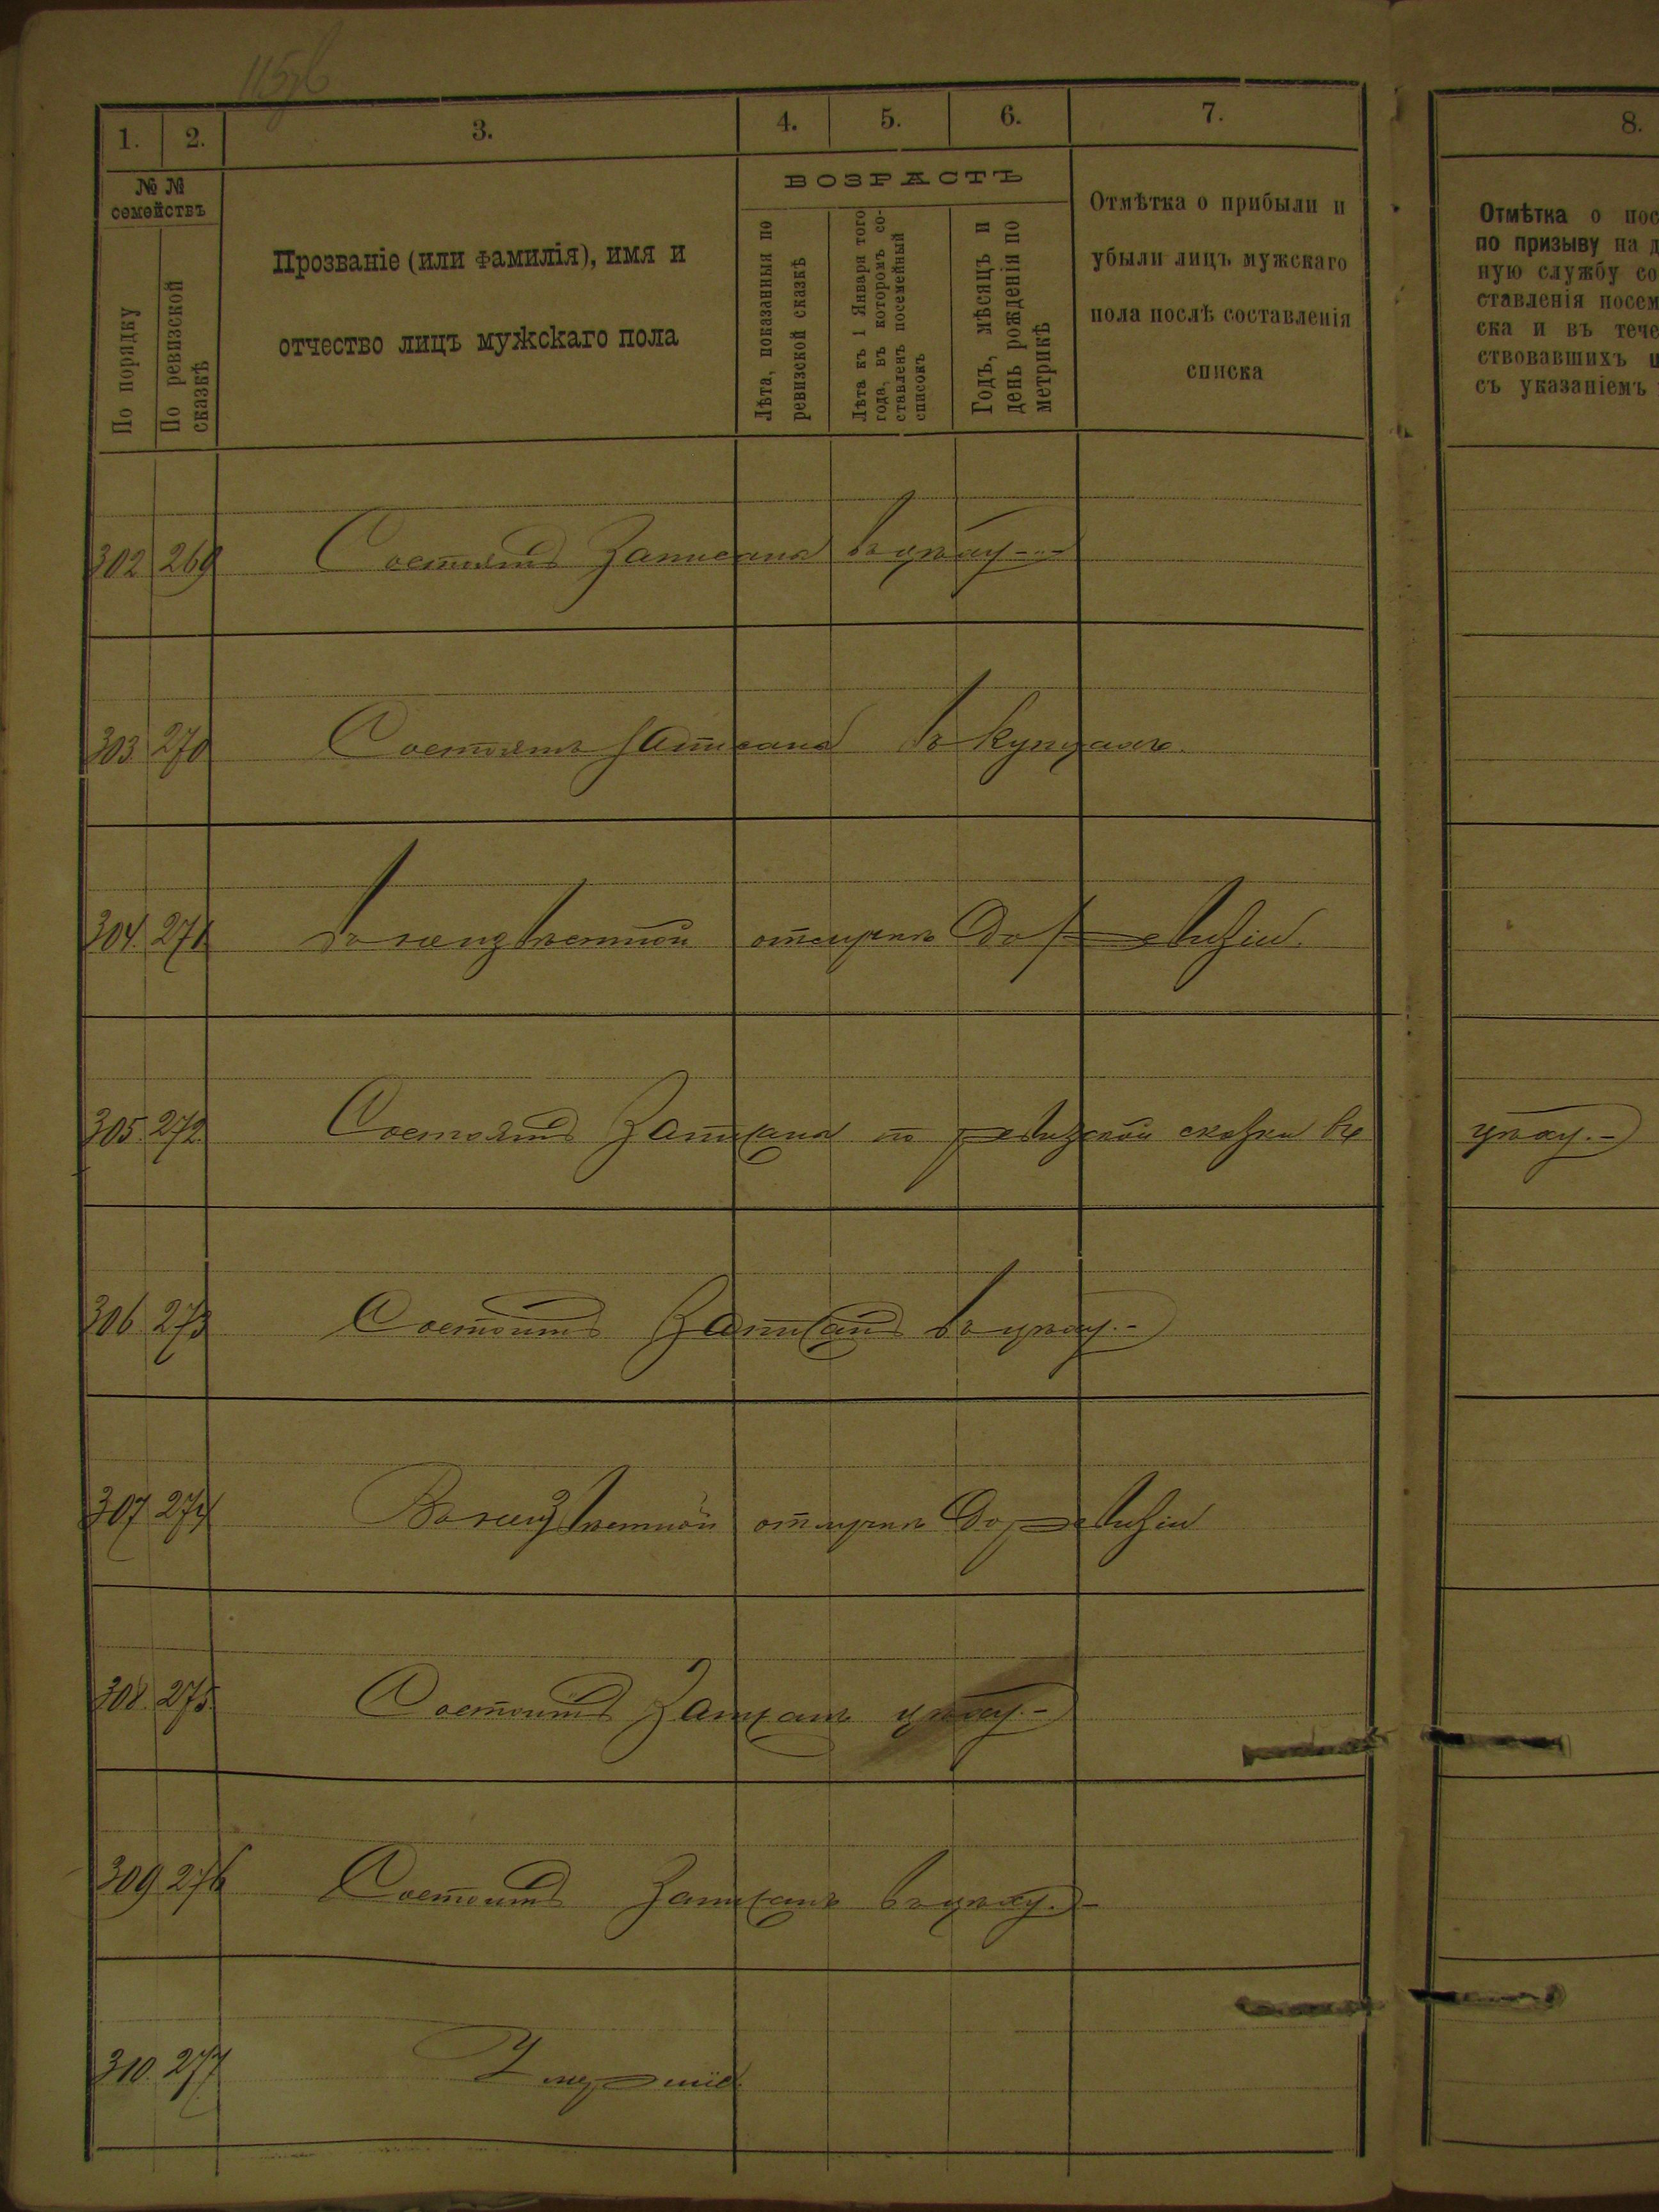 115об
1. 2. 3. 4. 5. 6. 7. 8.
№ №
семействъ
По порядку
По ревизской сказкѣ
Прозваніе (или фамилія), имя и
отчество лицъ мужскаго пола
ВОЗРАСТЪ
Лѣта, показанныя по
ревизской сказкѣ
Лѣта къ 1 Января того
года, въ которомъ со-
ставленъ посемейный
списокъ
Годъ, мѣсяцъ и
день рожденія по
метрикѣ
Отмѣтка о прибыли и
убыли лицъ мужскаго
пола послѣ составленія
списка
Отмѣтка о пос
по призыву на д
ную службу со
ставленія посем
ска и въ тече
ствовавшихъ и
съ указаніемъ
302 269 Состоятъ Записаны въ цѣху.-
303 270 Состоятъ Записаны въ купцахъ.
304. 271 въ неизвѣстной отлучкѣ до ревизіи.
305. 272 Состоятъ Записаны по ревизской сказки въ цѣху.-
306 273 Состоитъ Записанъ въ цѣху.-
307 274 Въ неизвѣстной отлучкѣ до ревизіи
308. 275. Состоитъ Записанъ цѣху.-
309 276 Состоитъ Записанъ въ цѣху.-
310. 277 Умершіе.